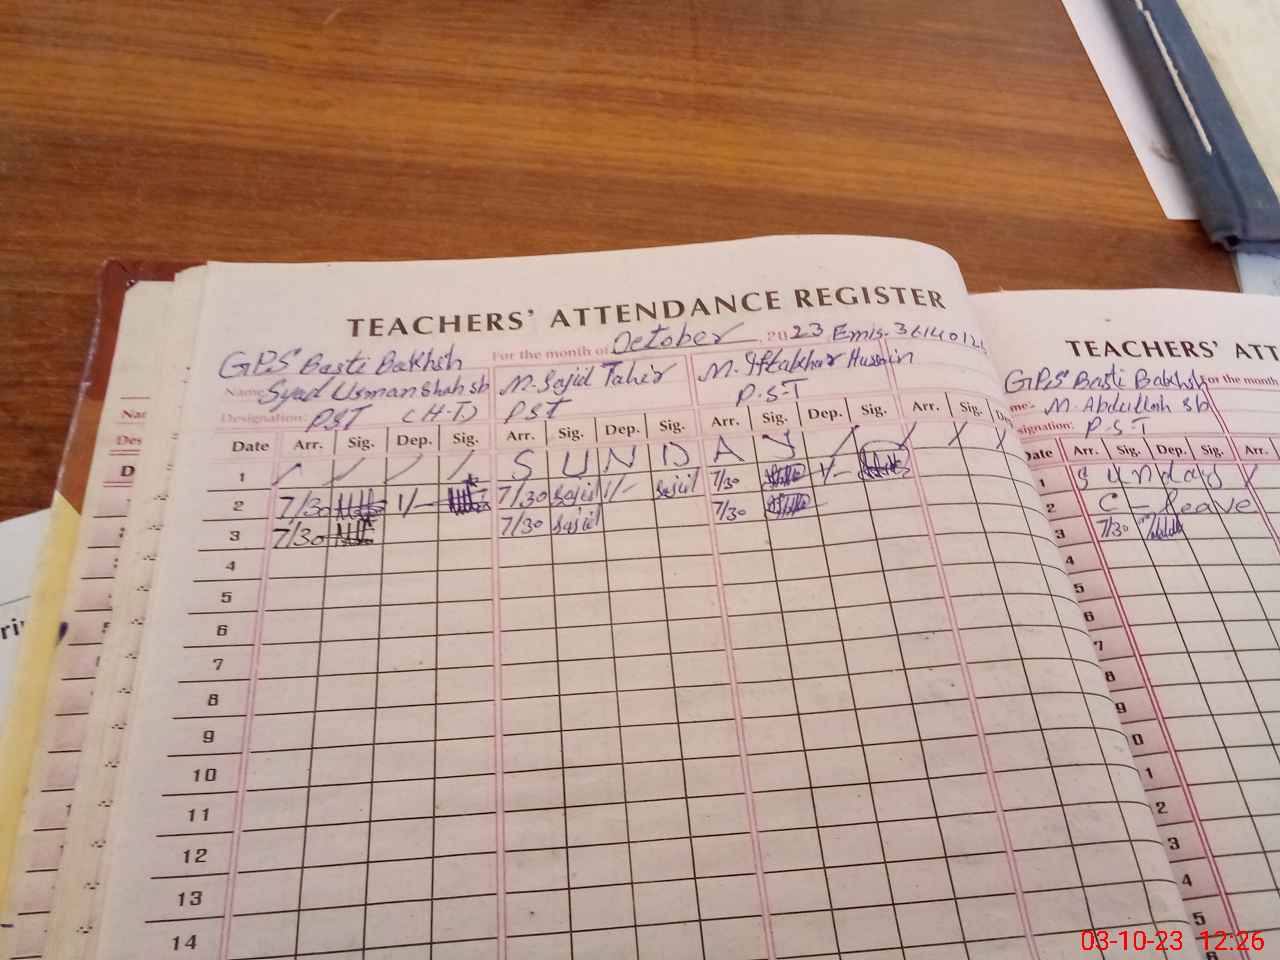 TEACHERS' ATTENDANCE REGISTER
GPS Basti Bakhsh For the month of October 2023 Emis. 3614012
Name: Syed Usman Shah sb M. Sajid Tahir M. Iftakhar Hussain
Designation: PST (H-T) PST P.S.T
Date Arr. Sig. Dep. Sig. Arr. Sig. Dep. Sig. Arr. Sig. Dep. Sig. Arr. Sig. Dep
1 / / / / S U N D A Y / / / /
2 7/30 1/- 7/30 Sajid 1/- Sajid 7/30 1/-
3 7/30 7/30 Sajid 7/30
4
5
6
7
8
9
10
11
12
13
14
TEACHERS' ATT
GPS Basti Bakhsh For the month
me:- M. Abdullah sb
signation: P.S.T
Date Arr. Sig. Dep. Sig. Arr.
1 Sunday /
2 C - leave
3 7/30
4
5
6
7
8
9
0
1
2
3
4
5
6
Nar
Des
D
ri
03-10-23 12:26